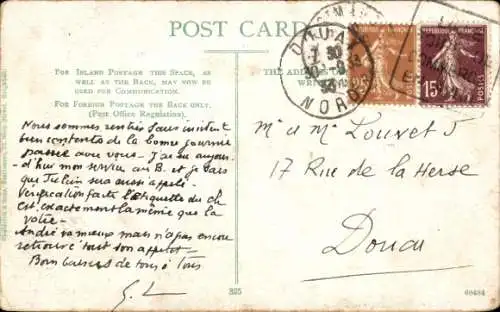 POST CARD
FOR INLAND POSTAGE THIS SPACE, AS
WELL AS THE BACK, MAY NOW BE
USED FOR COMMUNICATION.
FOR FOREIGN POSTAGE THE BACK ONLY.
(Post Office Regulation).
THE ADDRESS
Nous sommes rentrés sans incident
bien contents de la bonne journée
passée avec vous. J'ai eu aujour-
d'hui mon service au B. et je sais
que Tulin sera aussi appelé.
Vérification faite l'étiquette du
est exactement la même que la
vôtre.
André va mieux mais n'a pas encore
retrouvé tout son appétit
Bons baisers de tous à tous
G. L
M et Mme Louvet J
17 Rue de la Herse
Douai
DOUAI
7 30
NORD
REPUBLIQUE FRANÇAISE
25
REPUBLIQUE FRANÇAISE
15
POSTES
325
60484